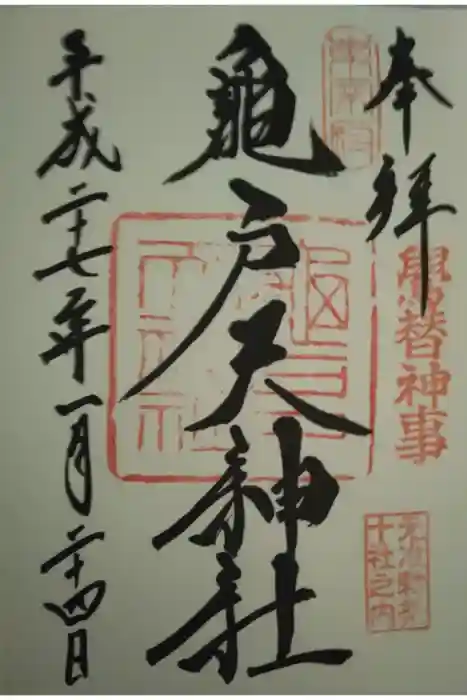 奉拝
鷽替神事
東京十社之内
龜戸天神社
平成二十七年一月二十四日